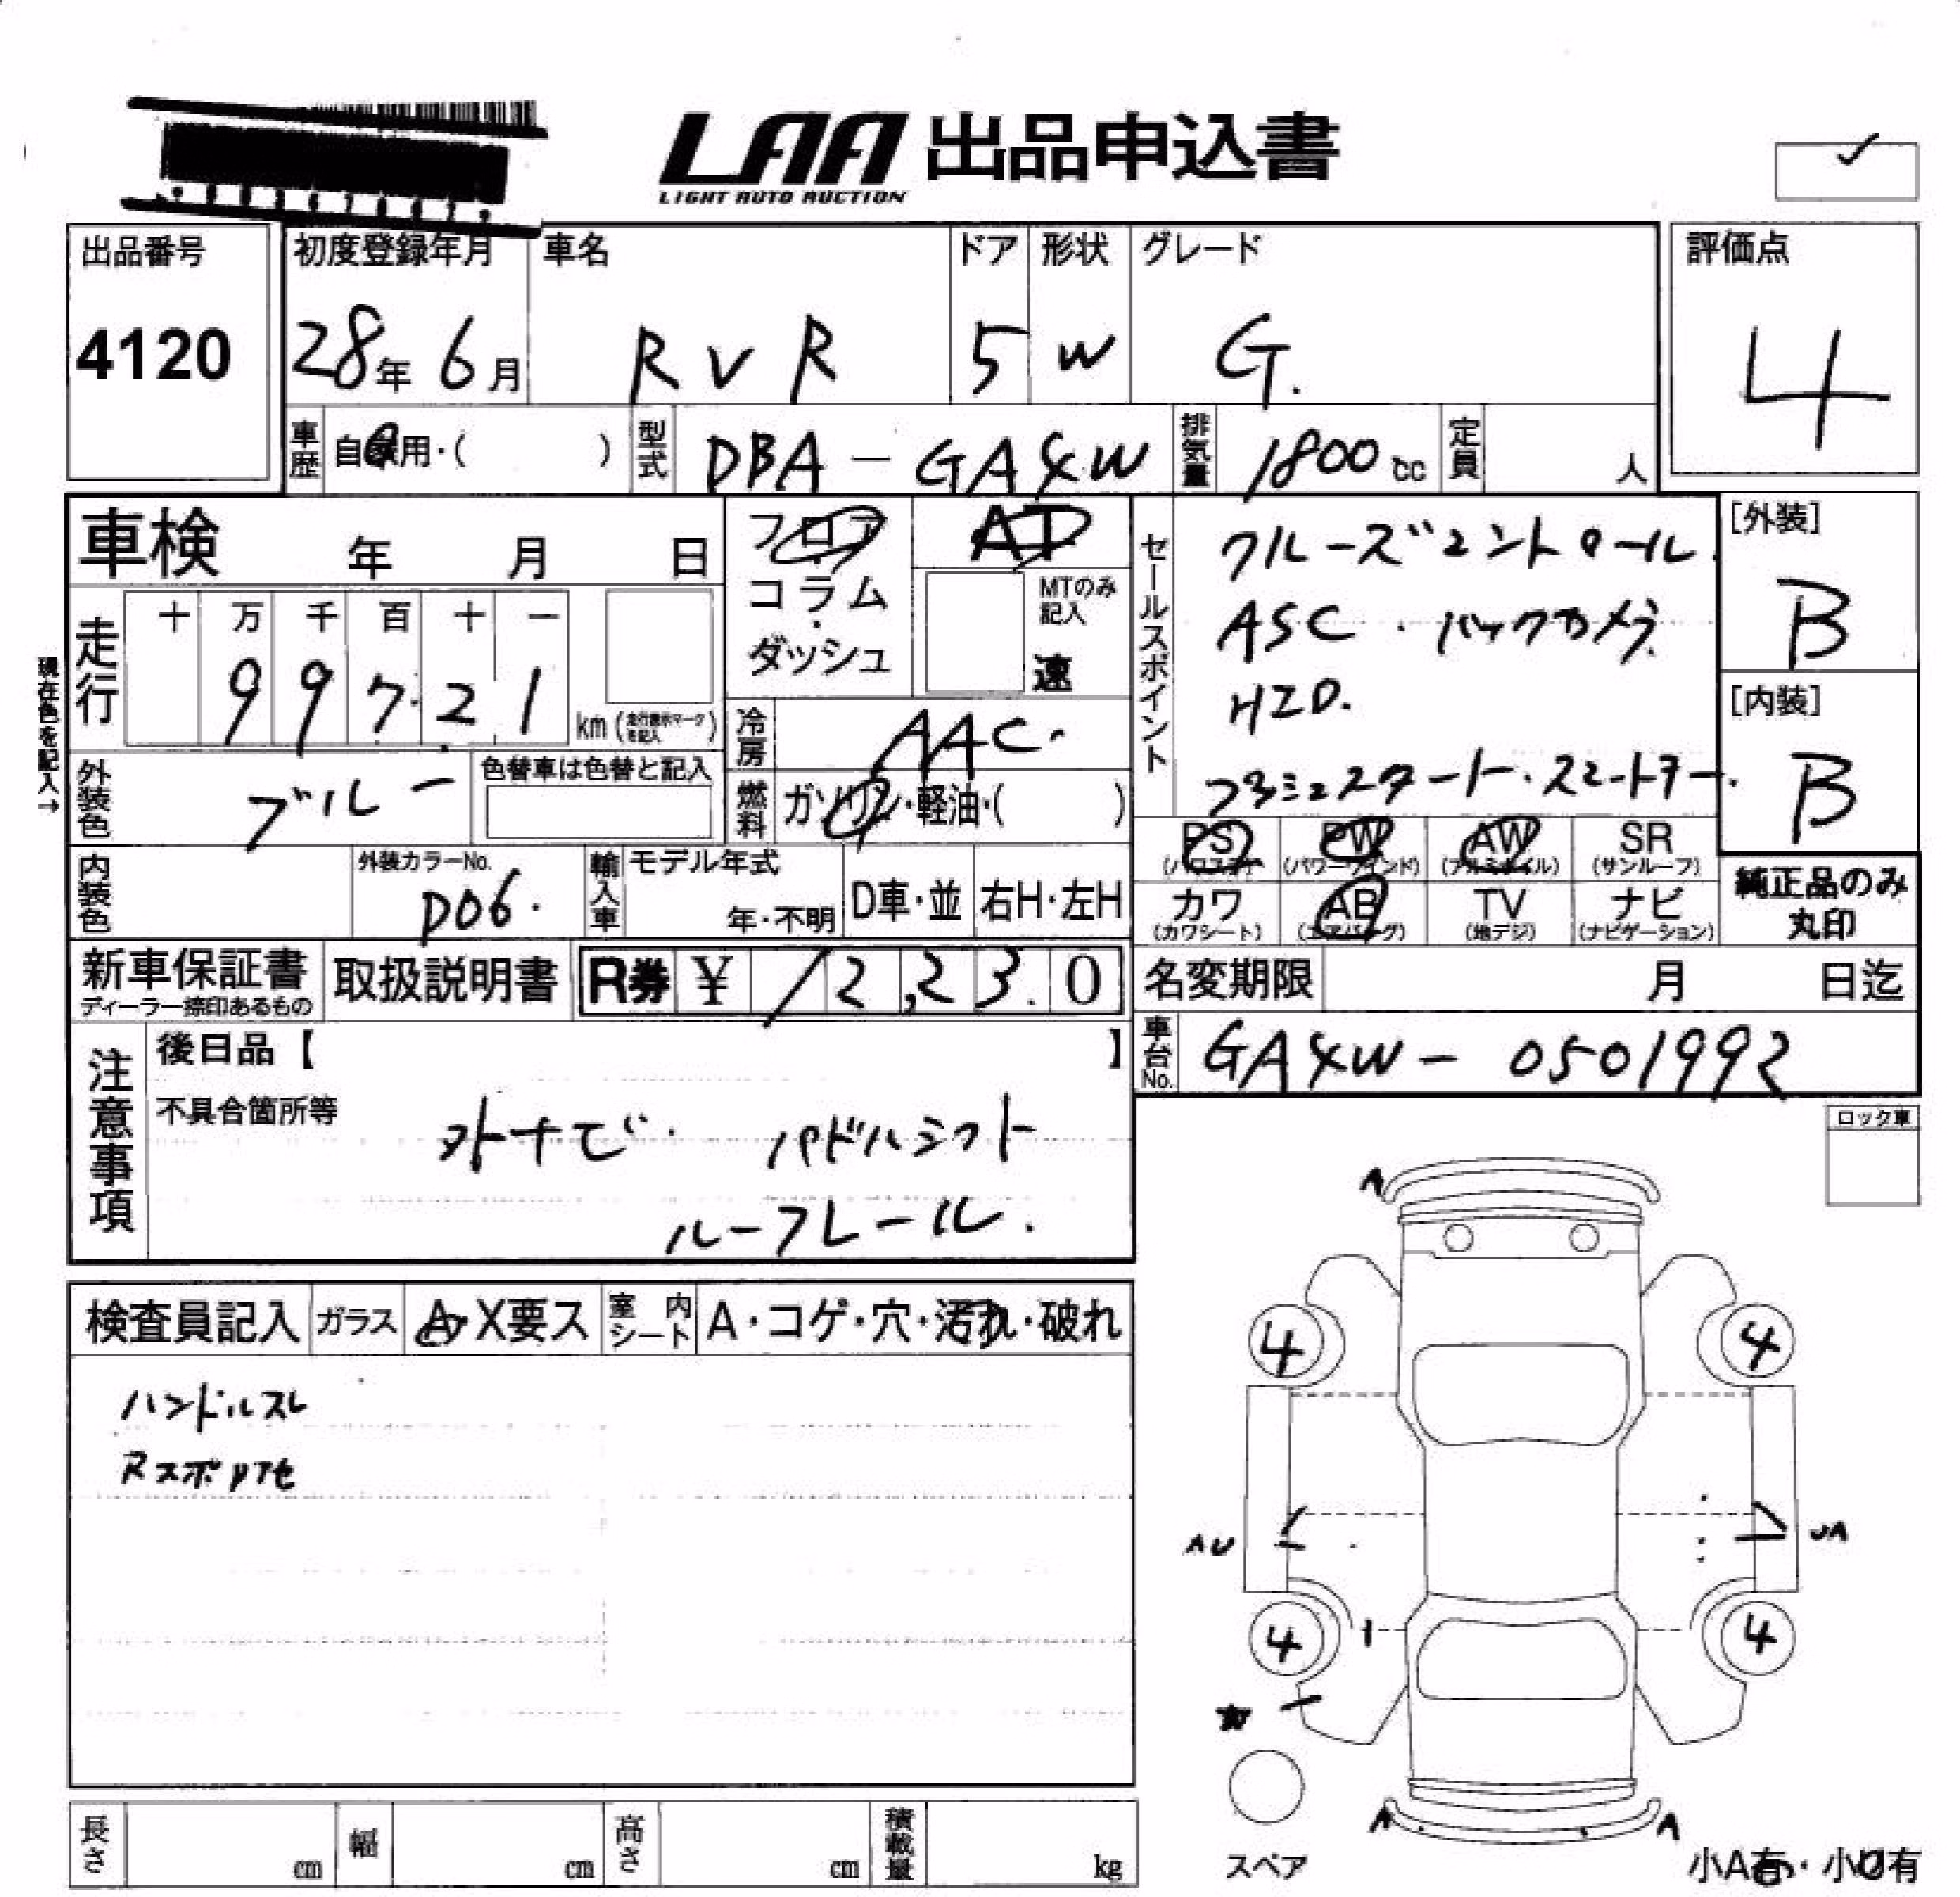 LAA 出品申込書
LIGHT AUTO AUCTION
出品番号
4120
初度登録年月
28年 6月
車名
RVR
ドア
5
形状
W
グレード
G.
評価点
4
車歴 自家用・( )
型式 DBA-GA4W
排気量 1800 cc
定員 人
車検 年 月 日
フロア
コラム
ダッシュ
AT
MTのみ記入
速
走行
十 万 千 百 十 一
9 9 7 2 1
km (走行表示マークを記入)
現在色を記入→
冷房 AAC.
燃料 ガソリン・軽油・( )
外装色 ブルー
色替車は色替と記入
内装色
外装カラーNo.
D06.
輸入車
モデル年式
年・不明
D車・並
右H・左H
セールスポイント
クルーズコントロール.
ASC・バックカメラ.
HID.
プッシュスタート・スマートキー.
PS (パワステ)
PW (パワーウインド)
AW (アルミホイル)
SR (サンルーフ)
カワ (カワシート)
AB (エアバッグ)
TV (地デジ)
ナビ (ナビゲーション)
[外装]
B
[内装]
B
純正品のみ
丸印
新車保証書
ディーラー捺印あるもの
取扱説明書
R券 ¥ 12,23.0
名変期限 月 日迄
車台No. GA4W-0501992
注意事項
後日品【 】
不具合箇所等
外ナビ. パドルシフト
ルーフレール.
ロック車
検査員記入
ガラス A・X要ス
室内シート A・コゲ・穴・汚れ・破れ
ハンドルスレ
A
4 4
AU UA
4 4
A A
スペア
小A有・小U有
長さ cm
幅 cm
高さ cm
積載量 kg